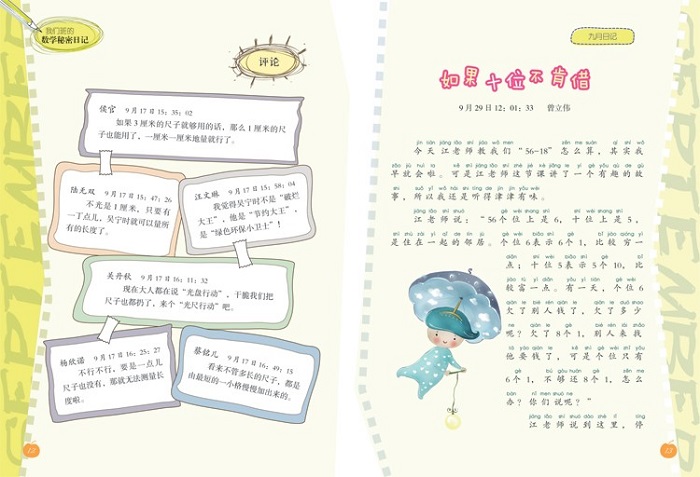 我们班的
数学秘密日记
评论
侯官 9月17日15:35:02
如果3厘米的尺子就够用的话，那么1厘米的尺
子也能用了，一厘米一厘米地量就行了。
陆无双 9月17日15:47:26
不光是1厘米，只要有
一丁点儿，吴宁时就可以量所
有的长度了。
汪文琳 9月17日15:58:04
我觉得吴宁时不是“破烂
大王”，他是“节约大王”，
是“绿色环保小卫士”！
吴舟秋 9月17日16:11:32
现在大人都在说“光盘行动”，干脆我们把
尺子也都扔了，来个“光尺行动”吧。
杨欣诺 9月17日16:25:27
不行不行，要是一点儿
尺子也没有，那就无法测量长
度啦。
蔡铭儿 9月17日16:49:15
看来不管多长的尺子，都是
由最短的一小格慢慢加出来的。
SEPTEMBER
12
九月日记
如果十位不肯借
9月29日12:01:33 曾立伟
今天江老师教我们“56-18”怎么算，其实我
早就会啦。可是江老师这节课讲了一个有趣的故
事，所以我还是听得津津有味。
江老师说：“56个位上是6，十位上是5，
是住在一起的邻居。个位6表示6个1，比较穷一
点；十位5表示5个10，比
较富一点。有一天，个位6
欠了别人钱了，欠了多少
呢？欠了8个1，别人来找
他要钱了，可是个位只有
6个1，不够还8个1，怎么
办？你们说呢？”
江老师说到这里，停
SEPTEMBER
13